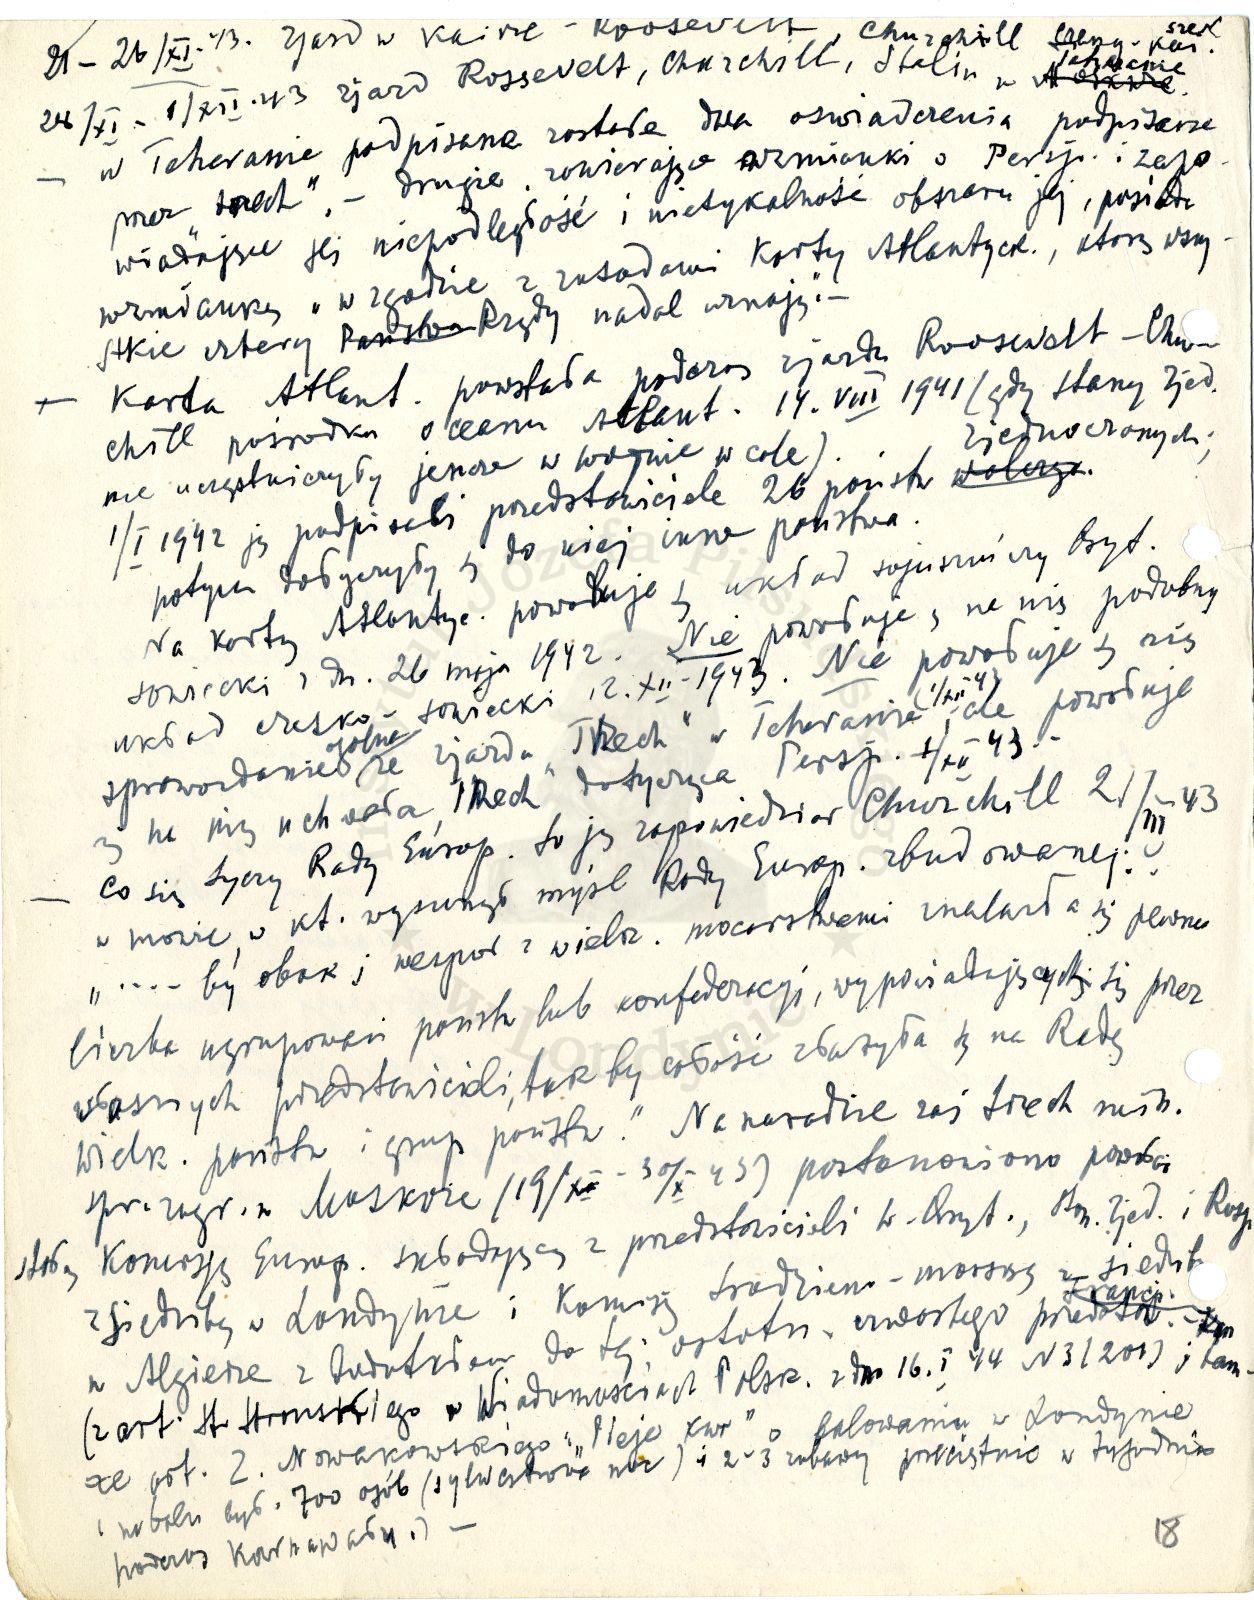 21 – 26/XI.43. zjazd w Kairze – Roosevelt, Churchill, Czang-Kai-szek.
28/XI – 1/XII.43 zjazd Rossevelt, Churchill, Stalin w Teheranie
– w Teheranie podpisane zostały dwa oświadczenia podpisane
przez „trzech", – drugie, zawierające wzmianki o Persji i zapo-
wiadające jej niepodległość i nietykalność obszaru jej, posiada
wzmiankę „w zgodzie z zasadami Karty Atlantyck., którą wszy-
stkie cztery Państwa Rządy nadal uznają". –
– Karta Atlant. powstała podczas zjazdu Roosewelt – Chur-
chill pośrodku oceanu Atlant. 14.VIII 1941 (gdy Stany Zjed.
nie uczestniczyły jeszcze w wojnie w cale). zjednoczonych;
1/I 1942 ją podpisali przedstawiciele 26 państw walczą.
potym dołączyły się do niej inne państwa.
Na Kartę Atlantyc. powołuje się układ sojuszniczy Bryt.
sowiecki z dn. 26 maja 1942. Nie powołuje się na nią podobny
układ czesko-sowiecki 12.XII-1943. Nie powołuje się nią
sprawozdanie ogólne ze zjazdu „Trzech" w Teheranie 1/XII 43, ale powołuje
się na nią uchwała „Trzech" dotycząca Persji. 1/XII 43. –
– Co się tyczy Rady Europ. to ją zapowiedział Churchill 21/III 43
w mowie, w kt. wysunął myśl Rady Europ. zbudowanej:
„.... by obok i wespół z wielk. mocarstwami znalazła się pewna
liczba ugrupowań państw lub konfederacji, wypowiadających się przez
własnych przedstawicieli, tak by całość złożyła się na Radę
Wielk. państw i grup państw." Na naradzie zaś trzech min.
spr. zagr. w Moskwie (19/X – 30/X 43) postanowiono powołać
stałą Komisję Europ. składającą z przedstawicieli W-Bryt., Stan. Zjed. i Rosji
z siedzibą w Londynie i Komisję śródziemn-morską z siedzibą
w Algierze z dodatkiem do tej ostatn. czwartego przedstaw. Francji.
(z art. St. Strońskiego w Wiadomościach Polsk. z dn 16.I 44 N 3(201) i tam-
że art. Z. Nowakowskiego „Pleje kur" o balowaniu w Londynie
i na balu był. 700 osób (sylwestrowa noc) i 2-3 zabawy przeciętnie w tygodniu
podczas Karnawału.) –
18
Józefa Piłsudskiego
w Londynie